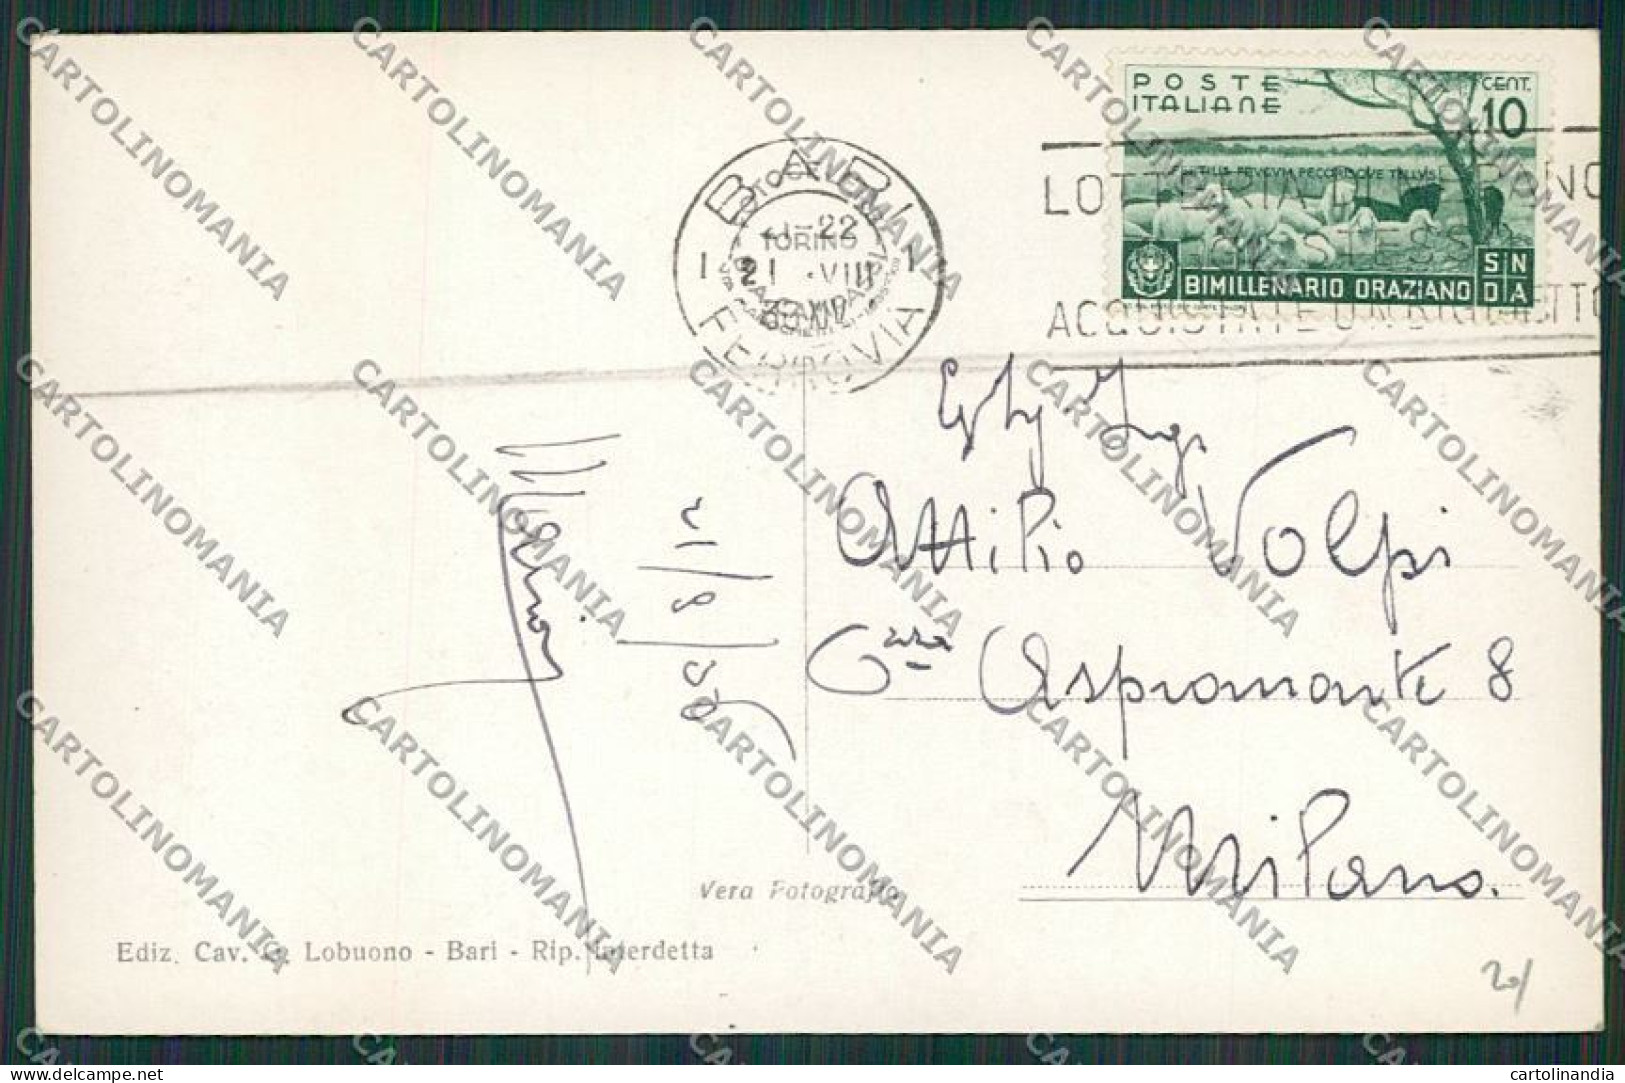 POSTE
ITALIANE
CENT.
10
BIMILLENARIO ORAZIANO
S N
D A
BARI
FOTOCELERE
TORINO
21-22
1 21 VIII 1
FERROVIA
LOTTERIA DI
ACQUISTATE UN BIGLIETTO
Ing.
Attilio Volpi
Aspromonte 8
Milano.
21/8/36
Vera Fotografia
Ediz. Cav. G. Lobuono - Bari - Rip. Interdetta
CARTOLINOMANIA
delcampe.net
cartolinandia